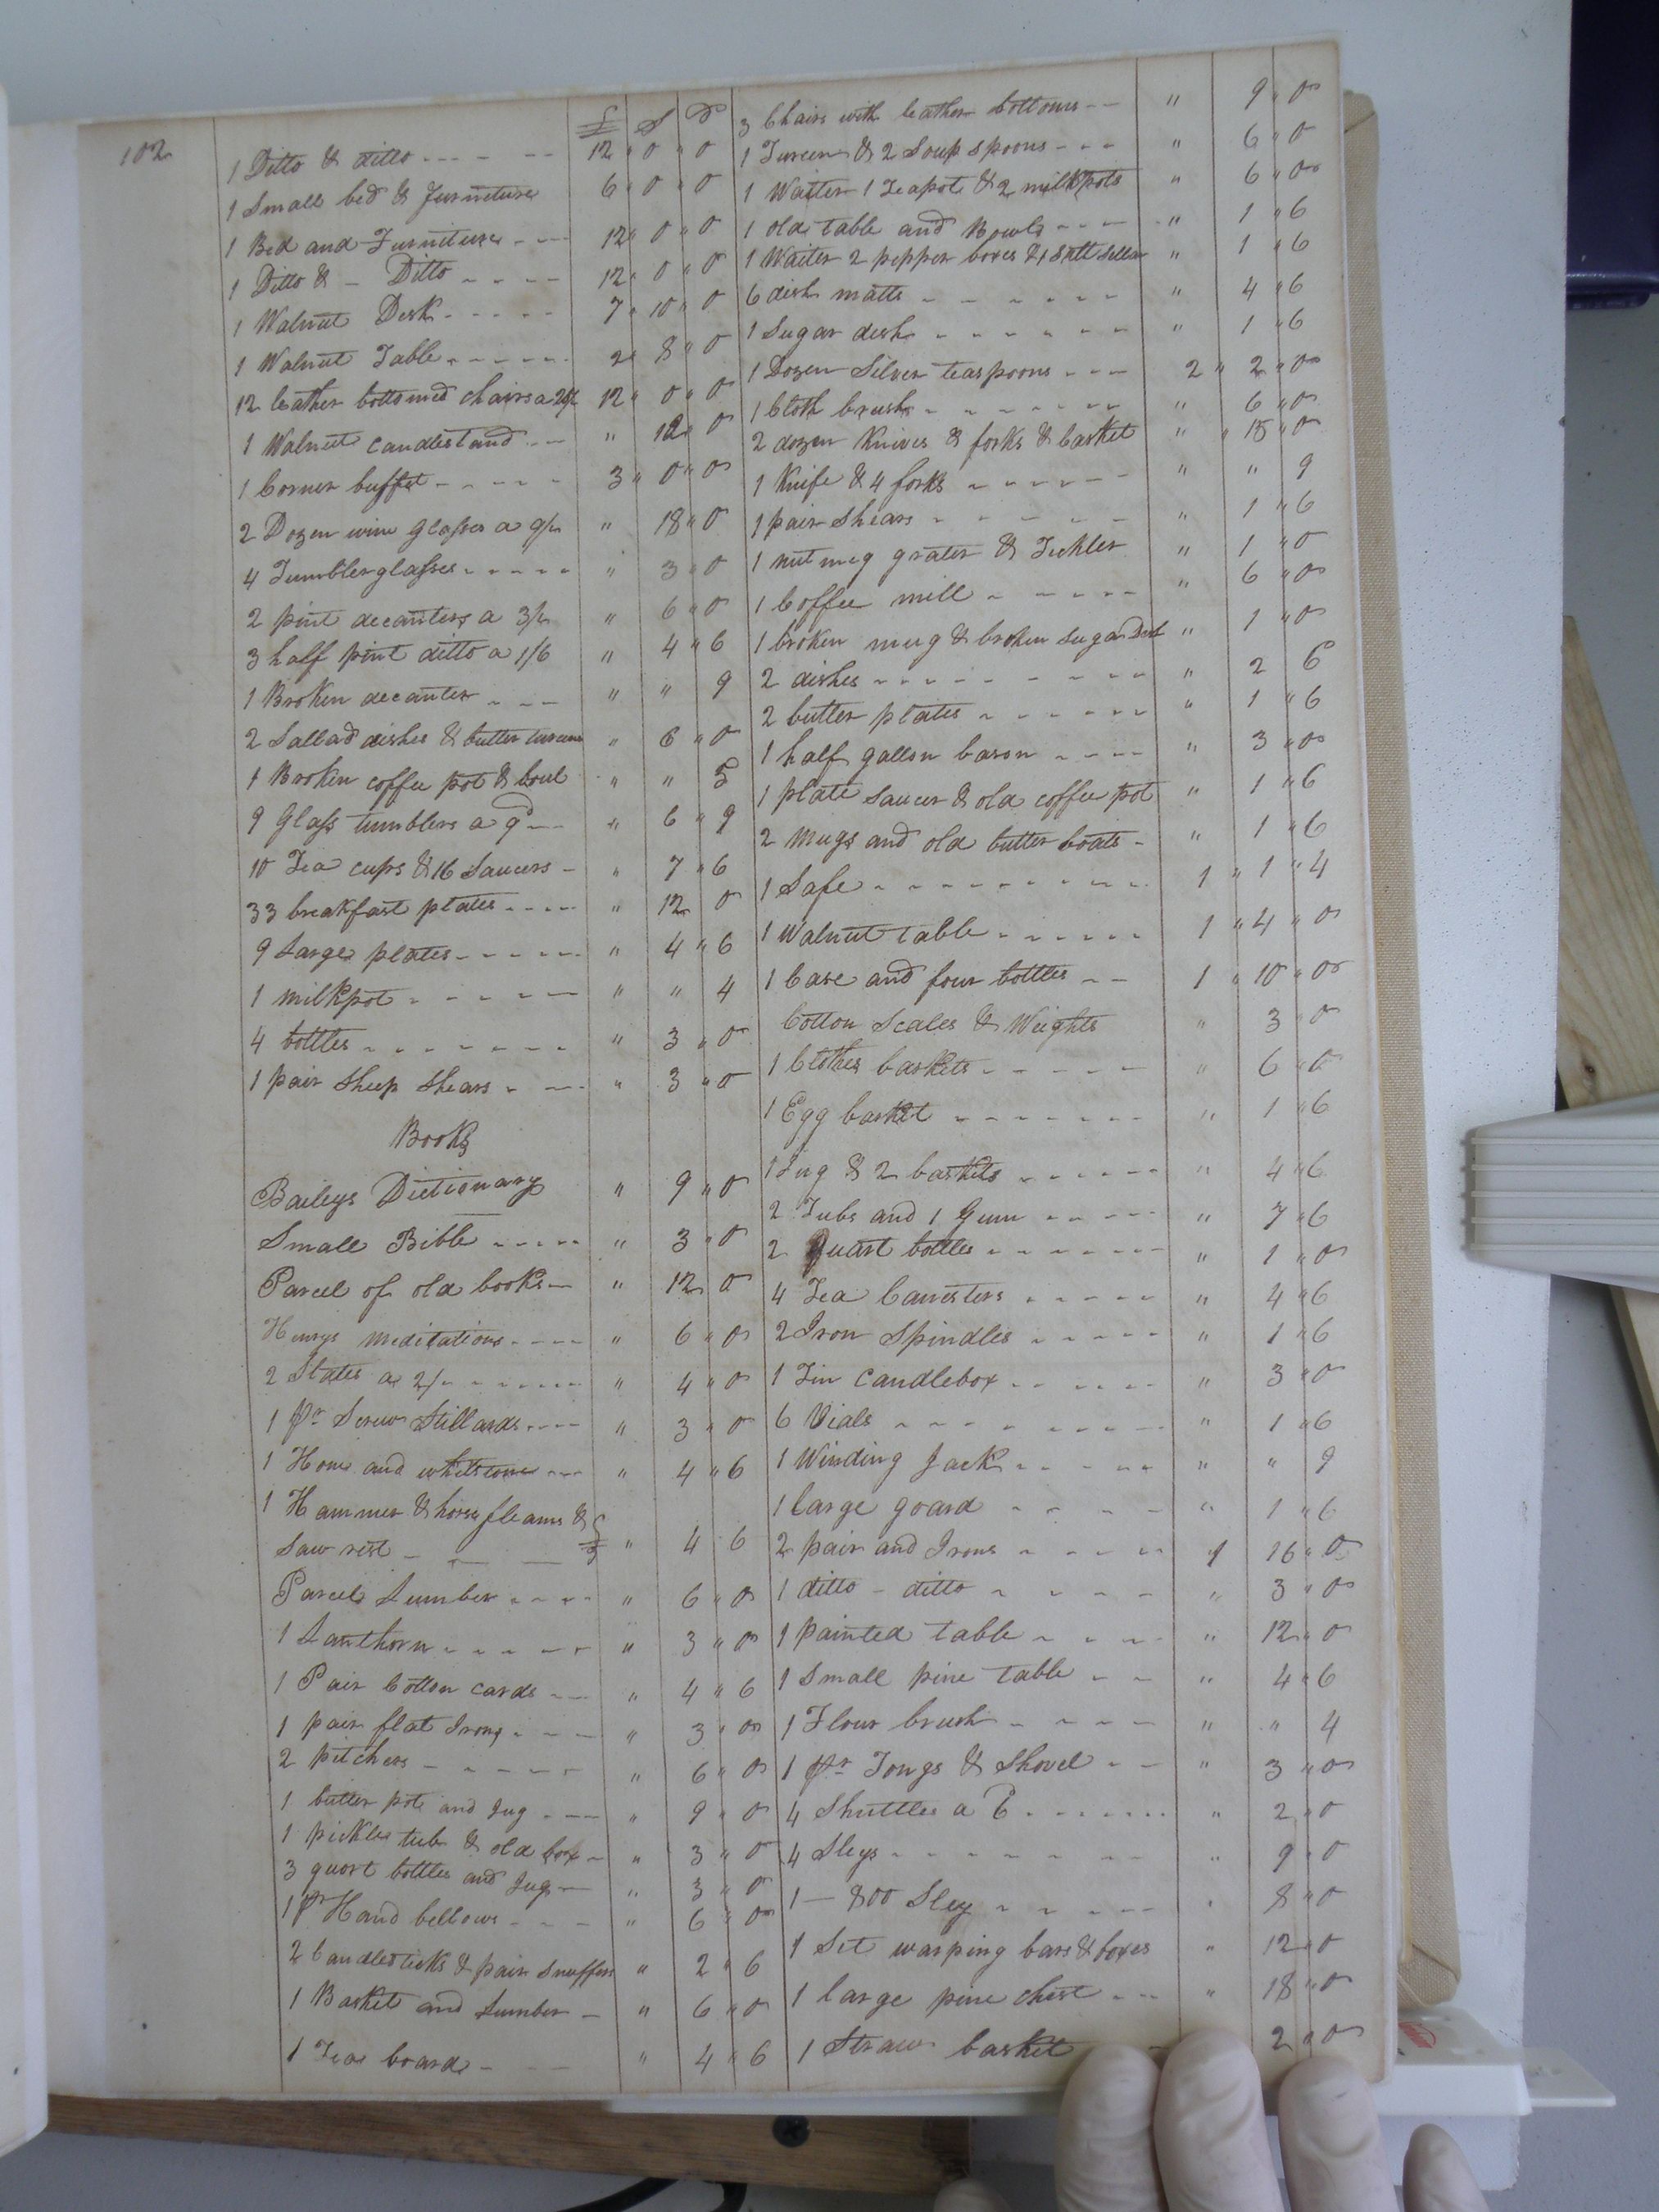 102
£ S D
1 Ditto & ditto 12 " 0 " 0
1 Small bed & furniture 6 " 0 " 0
1 Bed and Furniture 12 " 0 " 0
1 Ditto & Ditto 12 " 0 " 0
1 Walnut Desk 7 " 10 " 0
1 Walnut Table 2 " 8 " 0
12 leather bottomed chairs a 20/ 12 " 0 " 0
1 Walnut candlestand " 12 " 0
1 Corner buffet 3 " 0 " 0
2 Dozen wine glasses a 9/ " 18 " 0
4 Tumblerglasses " 3 " 0
2 pint decanters a 3/ " 6 " 0
3 half pint ditto a 1/6 " 4 " 6
1 Broken decanter " " 9
2 Sallad dishes & butter tureens " 6 " 0
1 Broken coffee pot & bowl " " 5
9 Glass tumblers a 9d " 6 " 9
10 Tea cups & 16 Saucers " 7 " 6
33 breakfast plates " 12 0
9 Large plates " 4 " 6
1 milkpot " " 4
4 bottles " 3 " 0
1 pair Sheep Shears " 3 " 0
Books
Baileys Dictionary " 9 " 0
Small Bible " 3 " 0
Parcel of old books " 12 0
Henrys meditations " 6 " 0
2 Slates a 2/ " 4 " 0
1 pr Screw Stillards " 3 " 0
1 Hone and whetstone " 4 " 6
1 Hammer & horse fleams &
Saw rest " 4 6
Parcel Lumber " 6 " 0
1 Lanthorn " 3 " 0
1 Pair Cotton cards " 4 " 6
1 pair flat Irons " 3 " 0
2 pitchers " 6 " 0
1 butter pot and Jug " 9 " 0
1 pickle tub & old box " 3 " 0
3 quart bottles and Jug " 3 " 0
1 pr Hand bellows " 6 " 0
2 Candlesticks & pair Snuffers " 2 " 6
1 Basket and Lumber " 6 " 0
1 Tea board " 4 " 6
3 Chairs with leather bottoms " 9 " 0
1 Tureen & 2 Soup spoons " 6 " 0
1 Waiter 1 Teapot & 2 milkpots " 6 " 0
1 old table and Bowls " 1 " 6
1 Waiter 2 pepper boxes & 1 Salt Seller " 1 " 6
6 dish matts " 4 " 6
1 Sugar dish " 1 " 6
1 Dozen Silver teaspoons 2 " 2 " 0
1 Cloth brush " 6 " 0
2 dozen Knives & forks & basket " 15 " 0
1 Knife & 4 forks " " 9
1 pair Shears " 1 " 6
1 nutmeg grater & Tickler " 1 " 0
1 Coffee mill " 6 " 0
1 broken mug & broken sugar Dish " 1 " 0
2 dishes " 2 6
2 butter plates " 1 " 6
1 half gallon bason " 3 " 0
1 plate Saucer & old coffee pot " 1 " 6
2 Mugs and old butter boats " 1 " 6
1 Safe 1 " 1 " 4
1 Walnut Table 1 " 4 " 0
1 Case and four bottles 1 " 10 " 0
Cotton Scales & Weights " 3 " 0
1 Clothes baskets " 6 " 0
1 Egg basket " 1 " 6
1 Jug & 2 baskets " 4 " 6
2 Tubs and 1 Gum " 7 " 6
2 Quart bottles " 1 " 0
4 Tea Canisters " 4 " 6
2 Iron Spindles " 1 " 6
1 Tin Candlebox " 3 " 0
6 Vials " 1 " 6
1 Winding Jack " " 9
1 large goard " 1 " 6
2 pair and Irons 1 16 " 0
1 ditto - ditto " 3 " 0
1 painted table " 12 " 0
1 Small pine table " 4 " 6
1 Flour brush " " 4
1 pr Tongs & Shovel " 3 " 0
4 Shuttles a 6 " 2 " 0
4 Sleys " 9 " 0
1 — 800 Sley " 8 " 0
1 Set warping bars & boxes " 12 " 0
1 large pine chest " 18 " 0
1 Straw basket 2 " 0